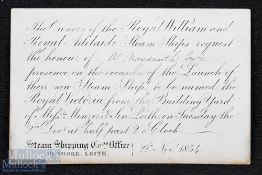 The Owners of the Royal William and
Royal Adelaide Steam Ships request
the honour of
presence on the occasion of the Launch of
their new Steam Ship to be named the
Royal Victoria from the Building Yard
of Messrs Menzies & Son Leith on Tuesday the
Decr at half past 2 o'Clock.
Steam Shipping Coys Office
SHORE, LEITH.
Novr 1834.
Mullock's